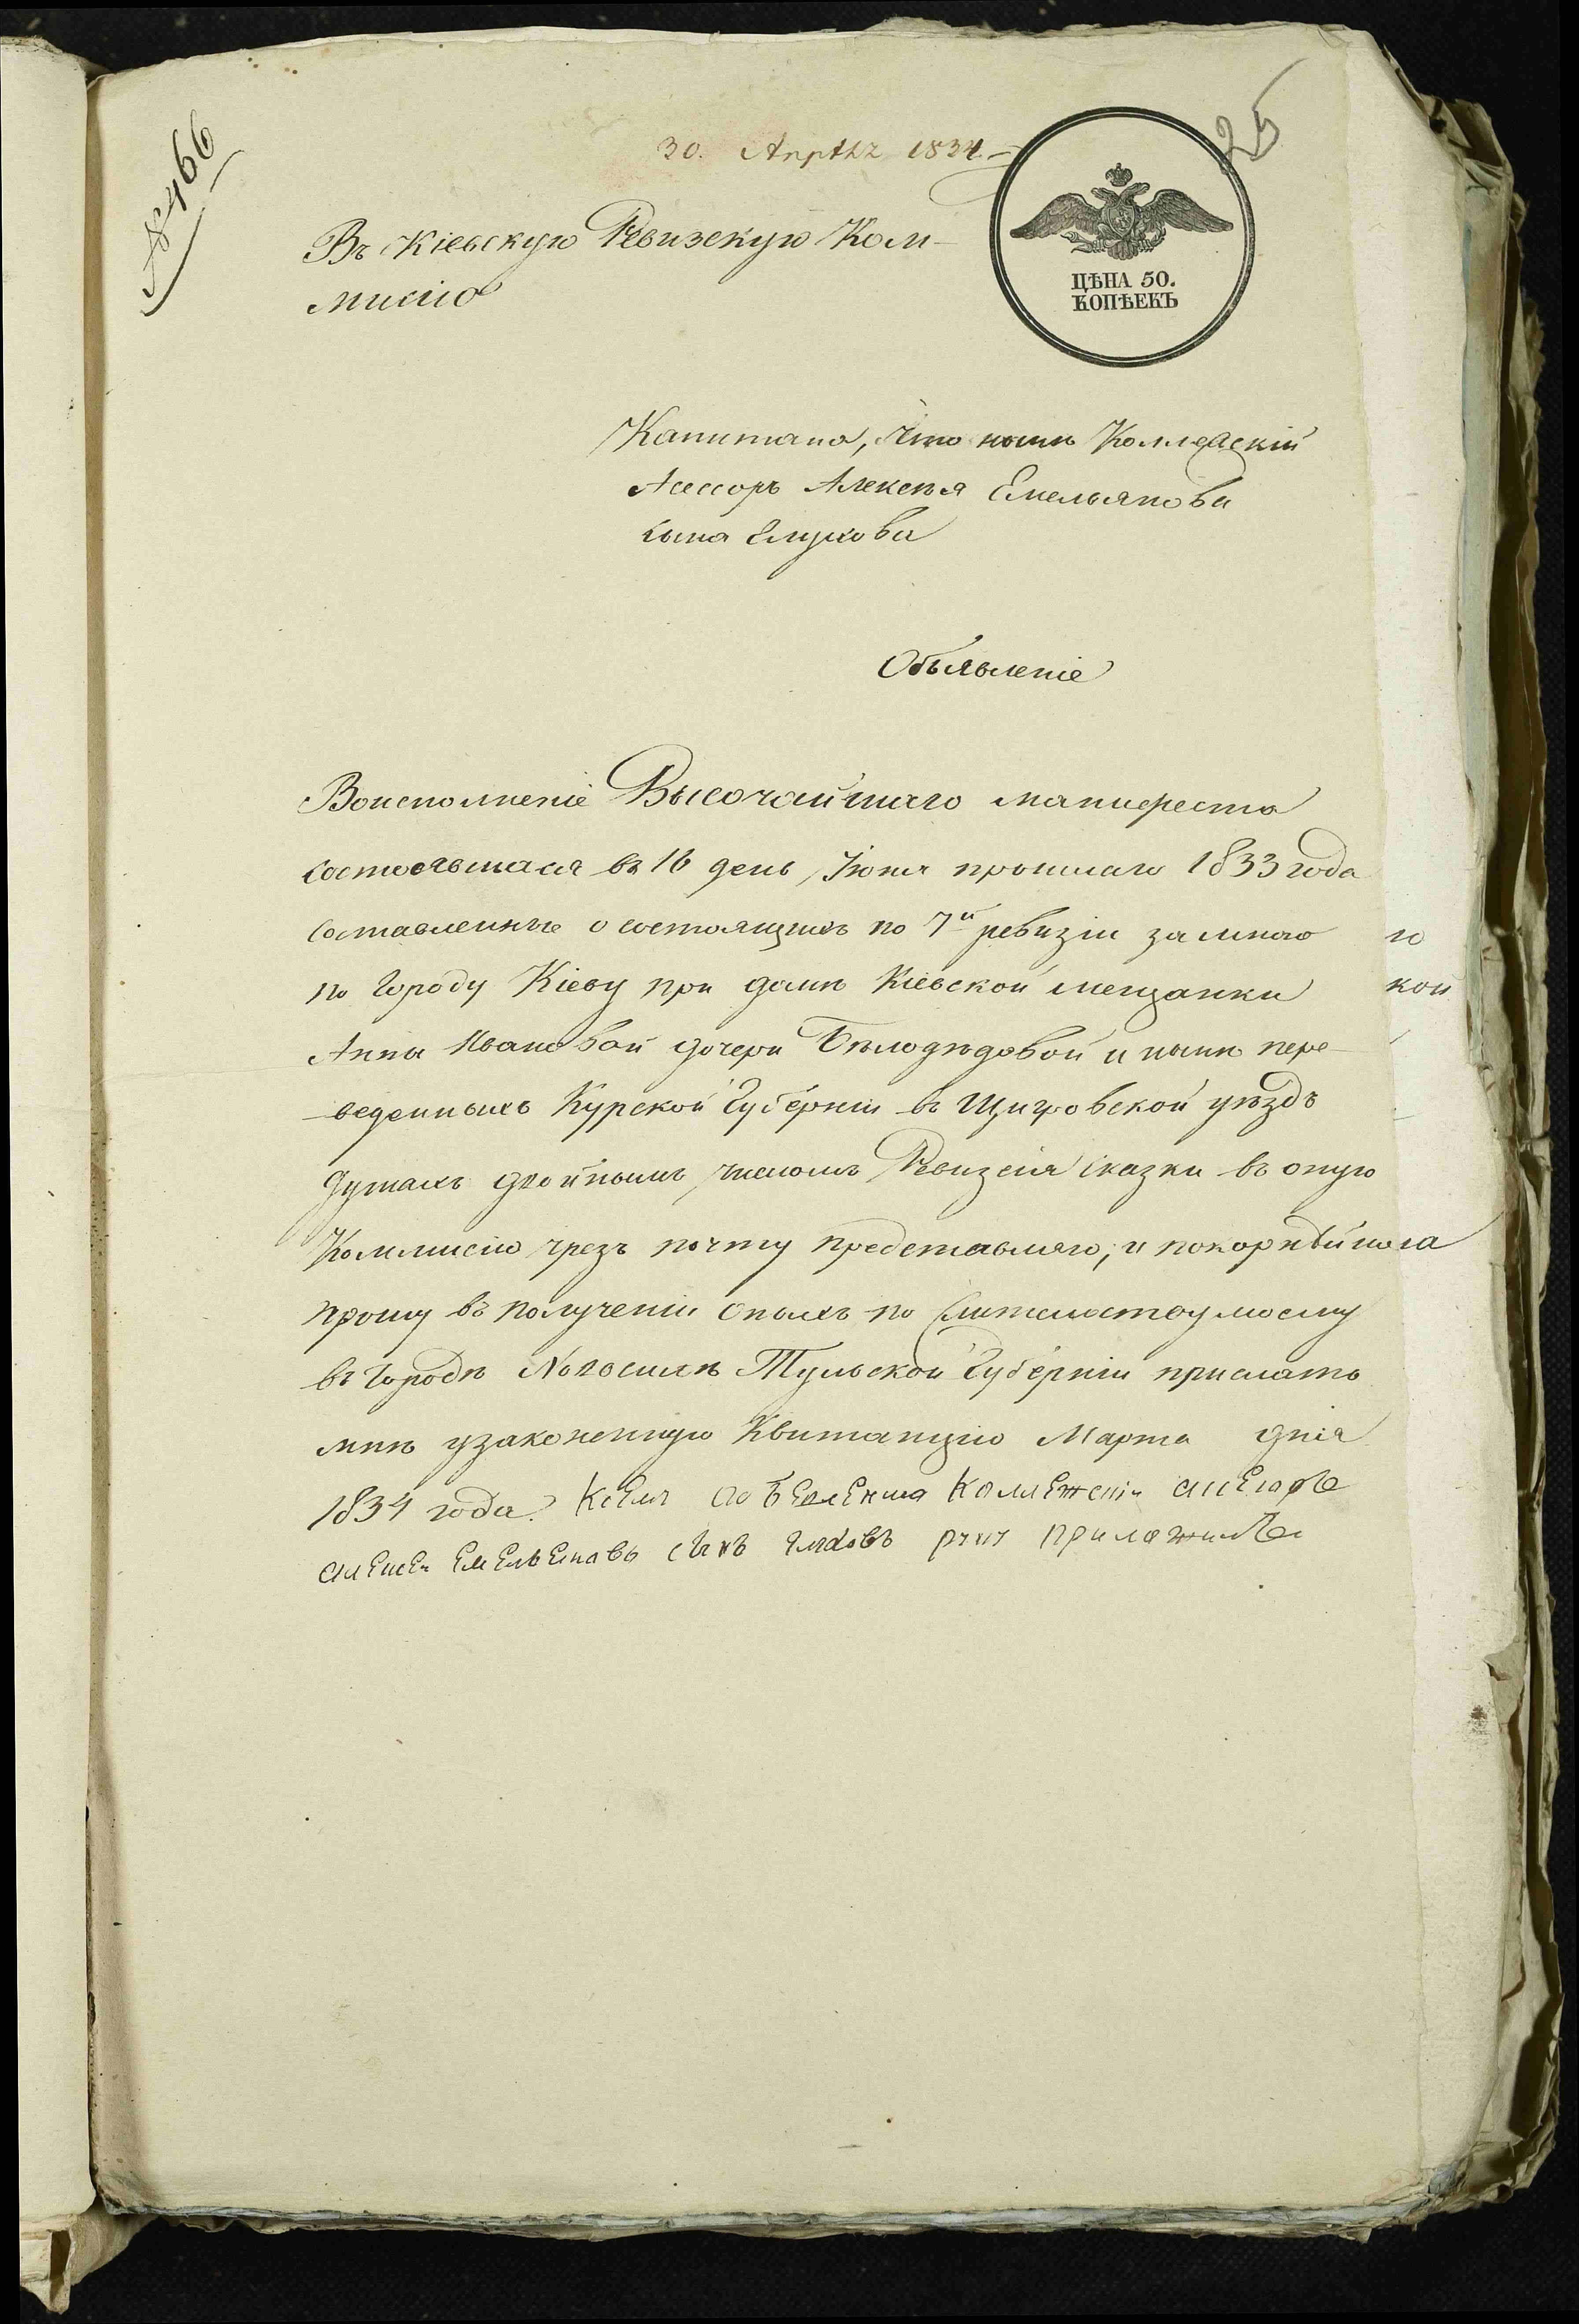 № 466
25
30. Апрѣлъ 1834.
ЦѢНА 50.
КОПѢЕКЪ
Въ Кіевскую Ревизскую Ком-
мисію
Капитана, что нынѣ Коллежскій
Асессоръ Алексѣя Емельянова
сына
Объявленіе
Воисполненіе Высочайшаго манифеста
состоявшася въ 16 день Іюня прошлаго 1833 года
составленные о состоящихъ по 7й ревизіи за мною
по городу Кіеву при домѣ Кіевской мещанки
Анны Ивановой дочери Бѣлодѣдовой и нынѣ пере-
веденныхъ Курской Губерніи въ Щигровской уѣздъ
душахъ двойнымъ числомъ Ревизсія сказки въ оную
Коммисію чрезъ почту представляю, и покорнѣйша
прошу въ полученіи оныхъ по жительству моему
въ городѣ Новосилѣ Тульской Губерніи прислать
мнѣ узаконенную Квитанцію Марта дня
1834 года. Ксему
Емельеновъ сынъ
ю
кой